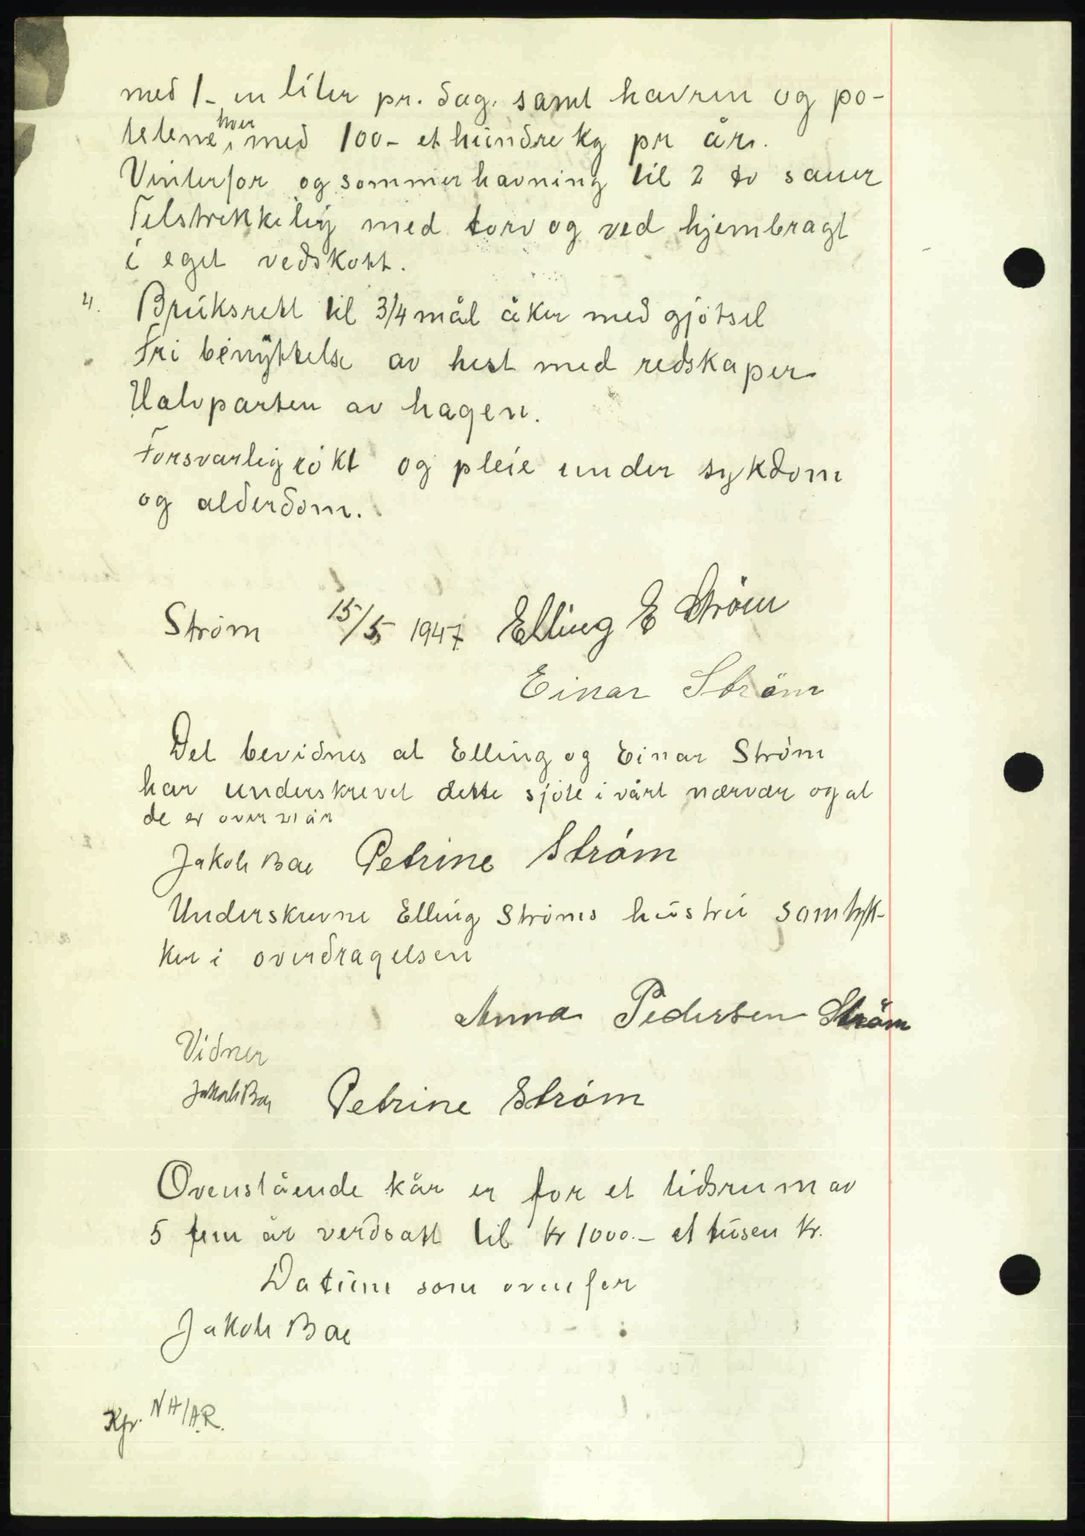 med 1- en liter pr. dag. samt havren og po-
tetene hver med 100- et hundre kg pr år.
Vinterfor og sommerhavning til 2 to sauer
Telstrekkelig med torv og ved hjembragt
i eget vedskott.
4. Bruksrett til 3/4 mål åker med gjötsel
Fri benyttelse av hest med redskaper
Halvparten av hagen.
Forsvarlig rökt og pleie under sykdom
og alderdom.
Ström 15/5 1947 Elling E Ström
Einar Ström
Det bevidnes at Elling og Einar Ström
har underskrevet dette sjöte i vårt nærvær og at
de er over 21 år
Jakob Bae Petrine Ström
Underskrevne Elling Ströms hustru samtyk-
ker i overdragelsen
Anna Pedersen Ström
Vidner
Jakob Bae Petrine Ström
Ovenstående kår er for et tidsrum av
5 fem år verdsatt til kr 1000.- et tusen kr.
Datum som ovenfor
Jakob Bae
Kfr. NH/A.R.